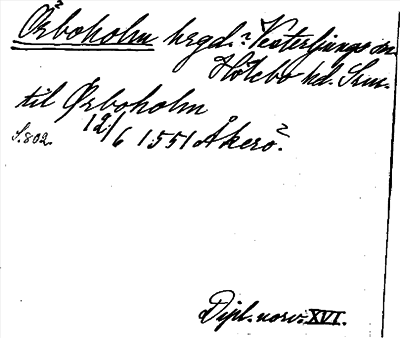 Ørboholm hrgd.? Vesterljungs sn.
Hölebo hd. Srm.
til Ørboholm
S. 802. 12/6 1551 Åkerø?
Dipl. norv. XVI.